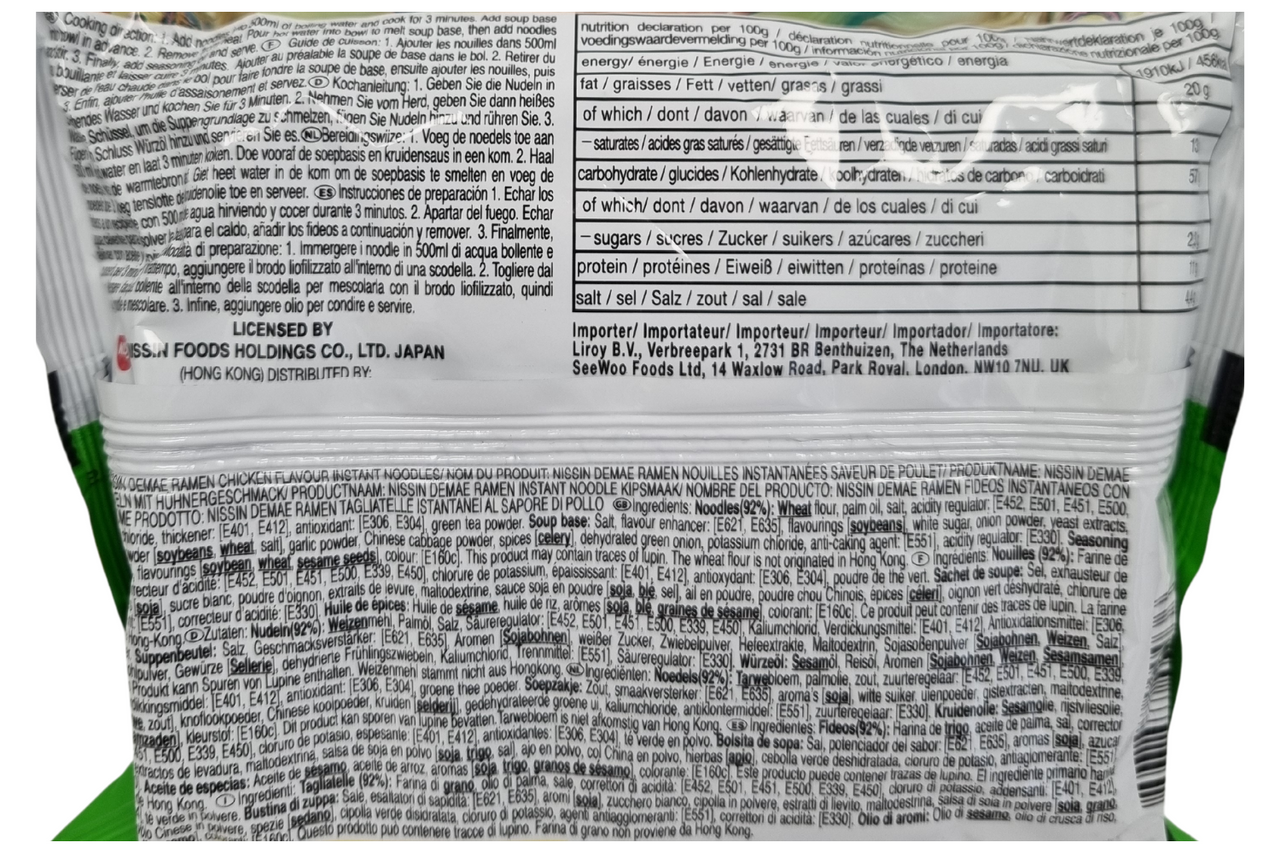 Cooking direction: 1. Add noodles 500ml of boiling water and cook for 3 minutes. Add soup base
in advance. 2. Pour hot water into bowl to melt soup base, then add noodles
3. Finally, add seasoning and serve. Ⓕ Guide de cuisson: 1. Ajouter les nouilles dans 500ml
bouillante et laisser cuire 3 minutes. Ajouter au préalable la soupe de base dans le bol. 2. Retirer du
de l'eau chaude bol pour faire fondre la soupe de base, ensuite ajouter les nouilles, puis
3. Enfin, ajouter l'huile d'assaisonnement et servez. Ⓓ Kochanleitung: 1. Geben Sie die Nudeln in
Wasser und kochen Sie für 3 Minuten. 2. Nehmen Sie vom Herd, geben Sie dann heißes
Schüssel, um die Suppengrundlage zu schmelzen, fügen Sie Nudeln hinzu und rühren Sie. 3.
Schluss Würzöl hinzu und servieren Sie es. NL Bereidingswijze: 1. Voeg de noedels toe aan
water en laat 3 minuten koken. Doe vooraf de soepbasis en kruidensaus in een kom. 2. Haal
de warmtebron. Giet heet water in de kom om de soepbasis te smelten en voeg de
tenslotte de kruidenolie toe en serveer. ES Instrucciones de preparación 1. Echar los
con 500ml de agua hirviendo y cocer durante 3 minutos. 2. Apartar del fuego. Echar
para el caldo, añadir los fideos a continuación y remover. 3. Finalmente,
di preparazione: 1. Immergere i noodle in 500ml di acqua bollente e
aggiungere il brodo liofilizzato all'interno di una scodella. 2. Togliere dal
bollente all'interno della scodella per mescolarla con il brodo liofilizzato, quindi
mescolare. 3. Infine, aggiungere olio per condire e servire.
LICENSED BY
NISSIN FOODS HOLDINGS CO., LTD. JAPAN
(HONG KONG) DISTRIBUTED BY:
nutrition declaration per 100g / déclaration nutritionnelle pour 100g / nährwertdeklaration je 100g
voedingswaardevermelding per 100g / información nutrizionale per 100g
energy/ énergie / Energie / energie / valor energético / energia 1910kJ / 456k
fat / graisses / Fett / vetten/ grasas / grassi 20 g
of which / dont / davon / waarvan / de las cuales / di cui
– saturates / acides gras saturés / gesättigte Fettsäuren / verzadigde vetzuren / saturadas / acidi grassi saturi 13
carbohydrate / glucides / Kohlenhydrate / koolhydraten / hidratos de carbono / carboidrati 57
of which/ dont / davon / waarvan / de los cuales / di cui
– sugars / sucres / Zucker / suikers / azúcares / zuccheri
protein / protéines / Eiweiß / eiwitten / proteínas / proteine
salt / sel / Salz / zout / sal / sale
Importer/ Importateur/ Importeur/ Importeur/ Importador/ Importatore:
Liroy B.V., Verbreepark 1, 2731 BR Benthuizen, The Netherlands
SeeWoo Foods Ltd, 14 Waxlow Road, Park Royal, London. NW10 7NU. UK
DEMAE RAMEN CHICKEN FLAVOUR INSTANT NOODLES/ NOM DU PRODUIT: NISSIN DEMAE RAMEN NOUILLES INSTANTANÉES SAVEUR DE POULET/ PRODUKTNAME: NISSIN DEMAE
MIT HÜHNERGESCHMACK/ PRODUCTNAAM: NISSIN DEMAE RAMEN INSTANT NOODLE KIPSMAAK/ NOMBRE DEL PRODUCTO: NISSIN DEMAE RAMEN FIDEOS INSTANTANEOS CON
PRODOTTO: NISSIN DEMAE RAMEN TAGLIATELLE ISTANTANEI AL SAPORE DI POLLO GB Ingredients: Noodles(92%): Wheat flour, palm oil, salt, acidity regulator: [E452, E501, E451, E500,
thickener: [E401, E412], antioxidant: [E306, E304], green tea powder. Soup base: Salt, flavour enhancer: [E621, E635], flavourings [soybeans], white sugar, onion powder, yeast extracts,
[soybeans, wheat, salt], garlic powder, Chinese cabbage powder, spices [celery], dehydrated green onion, potassium chloride, anti-caking agent: [E551], acidity regulator: [E330]. Seasoning
flavourings [soybean, wheat, sesame seeds], colour: [E160c]. This product may contain traces of lupin. The wheat flour is not originated in Hong Kong. Ⓕ Ingrédients: Nouilles (92%): Farine de
d'acidité: [E452, E501, E451, E500, E339, E450], chlorure de potassium, épaississant: [E401, E412], antioxydant: [E306, E304], poudre de thé vert. Sachet de soupe: Sel, exhausteur de
[soja], sucre blanc, poudre d'oignon, extraits de levure, maltodextrine, sauce soja en poudre [soja, blé, sel], ail en poudre, poudre chou Chinois, épices [céleri], oignon vert déshydraté, chlorure de
[E551], correcteur d'acidité: [E330]. Huile de épices: Huile de sésame, huile de riz, arômes [soja, blé, graines de sésame], colorant: [E160c]. Ce produit peut contenir des traces de lupin. La farine
Hong-Kong. Ⓓ Zutaten: Nudeln(92%): Weizenmehl, Palmöl, Salz, Säureregulator: [E452, E501, E451, E500, E339, E450], Kaliumchlorid, Verdickungsmittel: [E401, E412], Antioxidationsmittel: [E306,
Suppenbeutel: Salz, Geschmacksverstärker: [E621, E635], Aromen [Sojabohnen], weißer Zucker, Zwiebelpulver, Hefeextrakte, Maltodextrin, Sojasoßenpulver [Sojabohnen, Weizen, Salz],
Gewürze [Sellerie], dehydrierte Frühlingszwiebeln, Kaliumchlorid, Trennmittel: [E551], Säureregulator: [E330]. Würzeöl: Sesamöl, Reisöl, Aromen [Sojabohnen, Weizen, Sesamsamen],
Produkt kann Spuren von Lupine enthalten. Weizenmehl stammt nicht aus Hongkong. NL Ingrediënten: Noedels(92%): Tarwebloem, palmolie, zout, zuurteregelaar: [E452, E501, E451, E500, E339,
[E401, E412], antioxidant: [E306, E304], groene thee poeder. Soepzakje: Zout, smaakversterker: [E621, E635], aroma's [soja], witte suiker, uienpoeder, gistextracten, maltodextrine,
zout], knoflookpoeder, Chinese koolpoeder, kruiden [selderij], gedehydrateerde groene ui, kaliumchloride, antiklontermiddel: [E551], zuurteregelaar: [E330]. Kruidenolie: Sesamolie, rijstvliesolie,
kleurstof: [E160c]. Dit product kan sporen van lupine bevatten. Tarwebloem is niet afkomstig van Hong Kong. ES Ingredientes: Fideos(92%): Harina de trigo, aceite de palma, sal, corrector
E500, E339, E450], cloruro de potasio, espesante: [E401, E412], antioxidantes: [E306, E304], té verde en polvo. Bolsita de sopa: Sal, potenciador del sabor: [E621, E635], aromas [soja], azucar
extractos de levadura, maltodextrina, salsa de soja en polvo [soja, trigo, sal], ajo en polvo, col China en polvo, hierbas [apio], cebolla verde deshidratada, cloruro de potasio, antiaglomerante: [E551
Aceite de especias: Aceite de sésamo, aceite de arroz, aromas [soja, trigo, granos de sésamo], colorante: [E160c]. Este producto puede contener trazas de lupino. El ingrediente primario
Hong Kong. Ⓘ Ingredienti: Tagliatelle (92%): Farina di grano, olio di palma, sale, correttori di acidità: [E452, E501, E451, E500, E339, E450], cloruro di potassio, addensanti: [E401, E412],
tè verde in polvere. Bustina di zuppa: Sale, esaltatori di sapidità: [E621, E635], aromi [soia], zucchero bianco, cipolla in polvere, estratti di lievito, maltodestrina, salsa di soia in polvere [soia, grano,
Cinese in polvere, spezie [sedano], cipolla verde disidratata, cloruro di potassio, agenti antiagglomeranti: [E551], correttori di acidità: [E330]. Olio di aromi: Olio di sesamo, olio di crusca di riso,
[E160c]. Questo prodotto può contenere tracce di lupino. Farina di grano non proviene da Hong Kong.